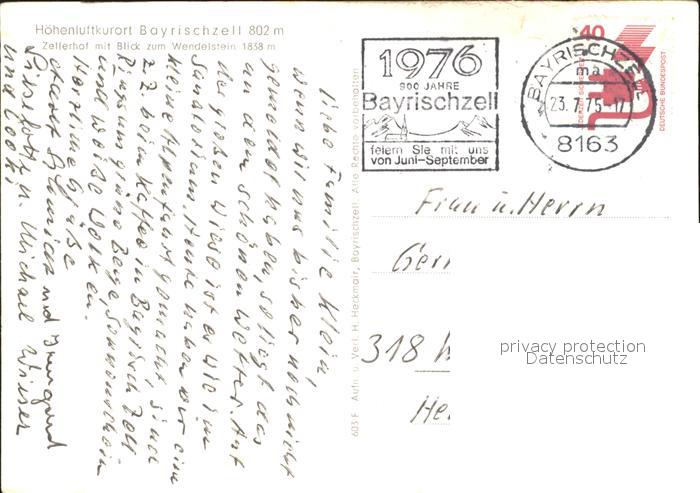 Höhenluftkurort Bayrischzell 802 m
Zellerhof mit Blick zum Wendelstein 1838 m
Liebe Familie Klein,
wenn wir uns bisher noch nicht
gemeldet haben, so liegt das
an dem schönen Wetter. Auf
der großen Wiese ist es wie im
Sanatorium. Heute haben wir eine
kleine gemacht, sind
z.Z. beim Kaffee in Bayrisch Zell
Rings um grüne Berge, Sonnenschein
und weiße Wolken.
Herzliche Grüße
und Irmgard
u. Michael Wieser
und
603 F Aufn. u. Verl. H. Heckmair, Bayrischzell. Alle Rechte vorbehalten
1976
900 JAHRE
Bayrischzell
feiern Sie mit uns
von Juni-September
BAYRISCHZELL
ma
23.7.75-17
8163
40
DEUTSCHE BUNDESPOST
Frau u. Herrn
318
privacy protection
Datenschutz